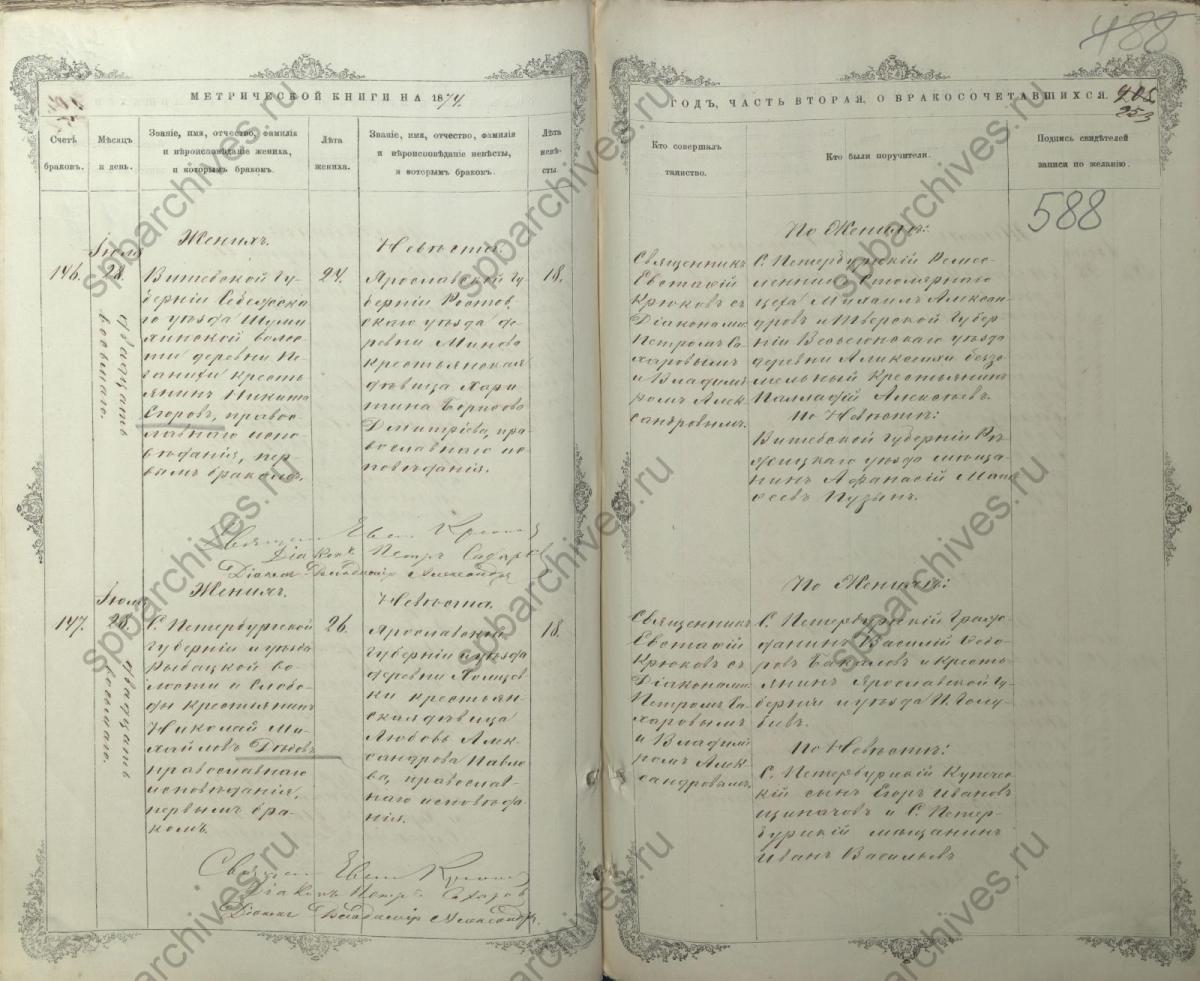 488
МЕТРИЧЕСКОЙ КНИГИ НА 1874.
ГОДЪ, ЧАСТЬ ВТОРАЯ, О БРАКОСОЧЕТАВШИХСЯ.
253
Счетъ браковъ.
Мѣсяцъ и день.
Званіе, имя, отчество, фамилія
и вѣроисповѣданіе жениха,
и которымъ бракомъ.
Лѣта жениха.
Званіе, имя, отчество, фамилія
и вѣроисповѣданіе невѣсты,
и которымъ бракомъ.
Лѣта невѣсты.
Кто совершалъ
таинство.
Кто были поручители.
Подпись свидѣтелей
записи по желанію.
588
146.
Іюля
28.
двадцать
восьмаго.
Женихъ.
Витебской Гу-
берніи Себежска-
го уѣзда
волос-
ти деревни
кресть-
янинъ Никита
Егоровъ, правос-
лавнаго испо-
вѣданія, пер-
вымъ бракомъ.
24.
Невѣста.
Ярославской Гу-
берніи Ростов-
скаго уѣзда де-
ревни
крестьянская
дѣвица Хари-
тина
Дмитріева, пра-
вославнаго ис-
повѣданія.
18.
Священникъ
Евстафій
Крюковъ съ
Діаконами
Петромъ Са-
харовымъ
и Владими-
ромъ Алек-
сандровымъ.
По Женихѣ:
С. Петербургскій Ремес-
ленникъ Столярнаго
цеха Михаилъ Алексан-
дровъ и Тверской Губер-
ніи Весьегонскаго уѣзда
деревни беззе-
мельный Крестьянинъ
Палладій Алексѣевъ.
По Невѣстѣ:
Витебской Губерніи Рѣ-
жицкаго уѣзда мѣща-
нинъ Афанасій
Пузынъ.
Священ Евст Крюковъ
Діаконъ Петръ Сахаровъ
Діаконъ Владиміръ Александровъ
147.
Іюля
28.
двадцать
восьмаго.
Женихъ.
С. Петербургской
губерніи и уѣзда
Рыбацкой во-
лости и Слобо-
ды крестьянинъ
Николай Ми-
хайловъ
православнаго
исповѣданія,
первымъ бра-
комъ.
26.
Невѣста.
Ярославской
губерніи и уѣзда
деревни
крестьян-
ская дѣвица
Любовь Алек-
сандрова Павло-
ва, православ-
наго исповѣда-
нія.
18.
Священникъ
Евстафій
Крюковъ съ
Діаконами
Петромъ Са-
харовымъ
и Владими-
ромъ Алек-
сандровымъ.
По Женихѣ:
С. Петербургскій Граж-
данинъ Василій Ѳедо-
ровъ и кресть-
янинъ Ярославской Гу-
берніи и уѣзда И. Голу-
бевъ.
По Невѣстѣ:
С. Петербургскій Купечес-
кій сынъ Егоръ Ивановъ
и С. Петер-
бургскій мѣщанинъ
Иванъ Васильевъ
Священ Евст Крюковъ
Діаконъ Петръ Сахаровъ
Діаконъ Владиміръ Александровъ.
spbarchives.ru